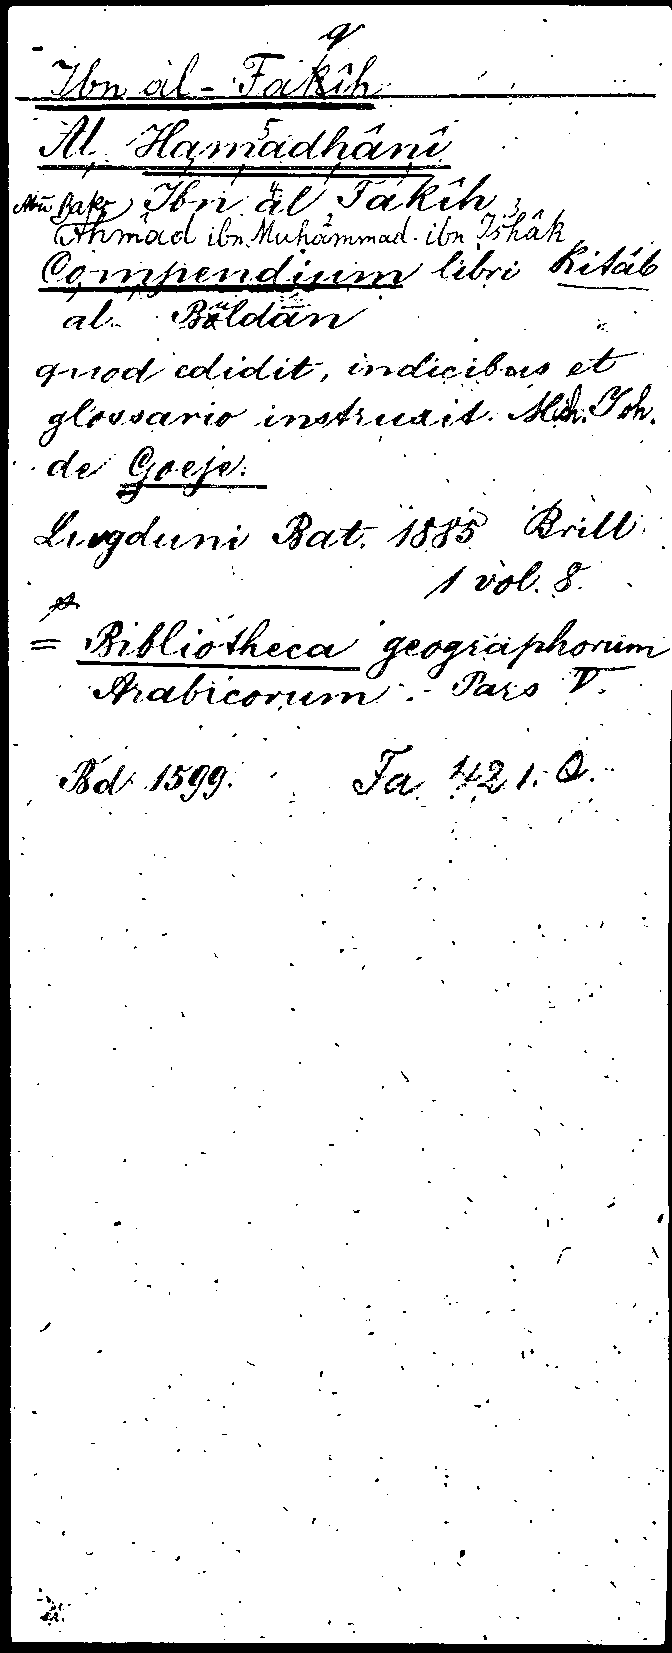 q
Ibn al-Fakîh
Al Hamadhânî
Abū Bakr Ibn al Fakîh,
Ahmad ibn Muhammad ibn Ishâk
Compendium libri Kitâb
al Boldân
quod edidit, indicibus et
glossario instruxit. Mich. Joh.
de Goeje.
Lugduni Bat. 1885 Brill
1 vol. 8.
= Bibliotheca geographorum
Arabicorum. - Pars V.
Bd 1599. Fa 421. Q.